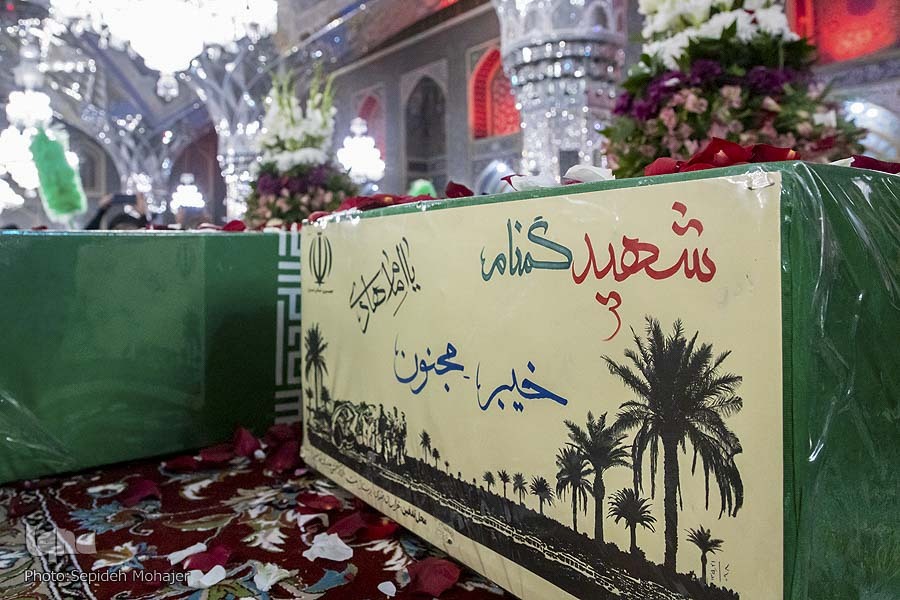 شهید گمنام
یا امام هادی
خیبر، مجنون
iqna
Photo:Sepideh Mohajer